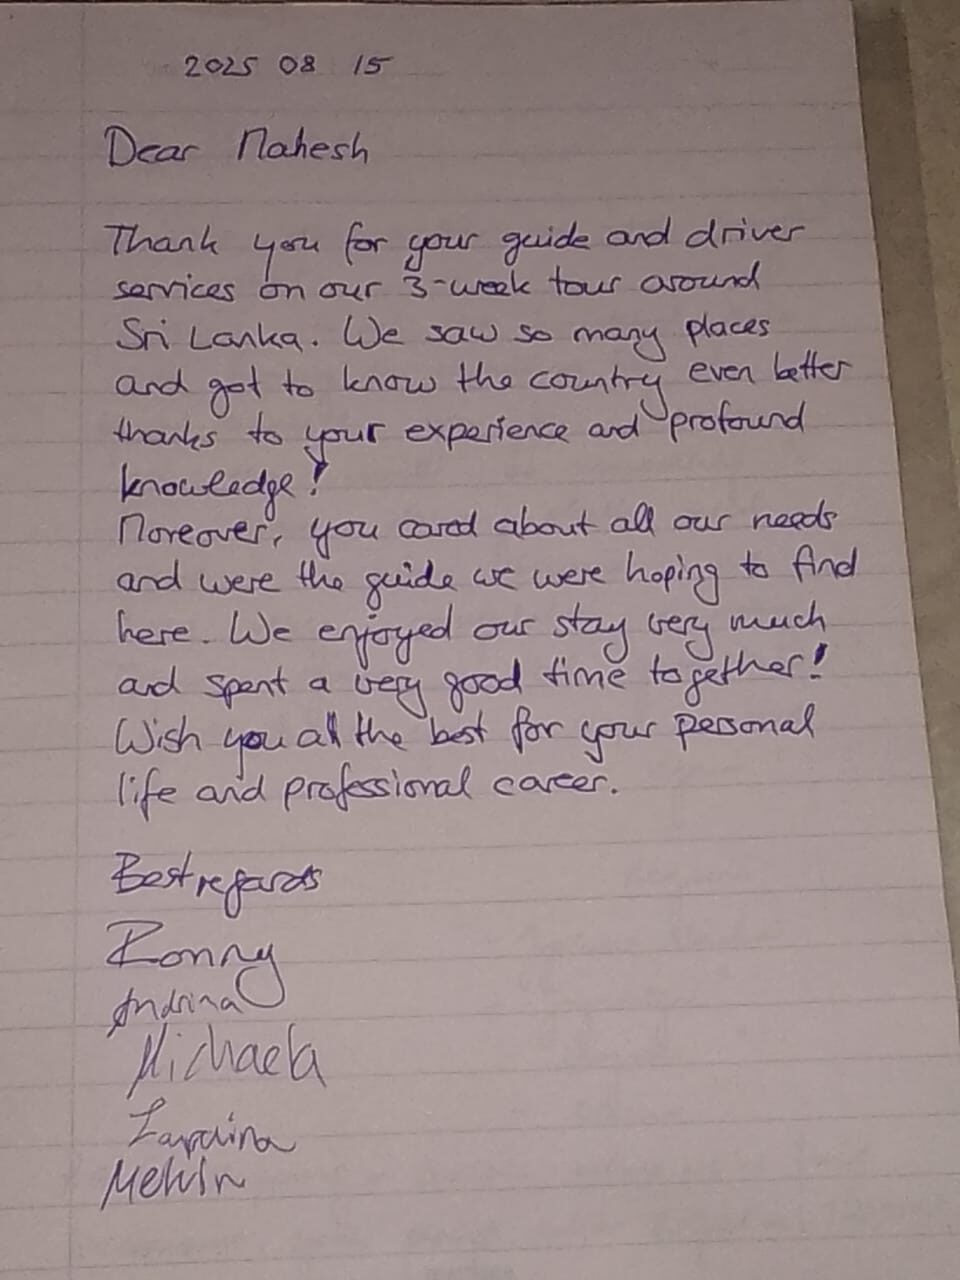 2025 08 15
Dear Mahesh
Thank you for your guide and driver
services on our 3-week tour around
Sri Lanka. We saw so many places
and got to know the country even better
thanks to your experience and profound
knowledge!
Moreover, you cared about all our needs
and were the guide we were hoping to find
here. We enjoyed our stay very much
and spent a very good time together!
Wish you all the best for your personal
life and professional career.
Best regards
Ronny
Andrina
Michaela
Melvin